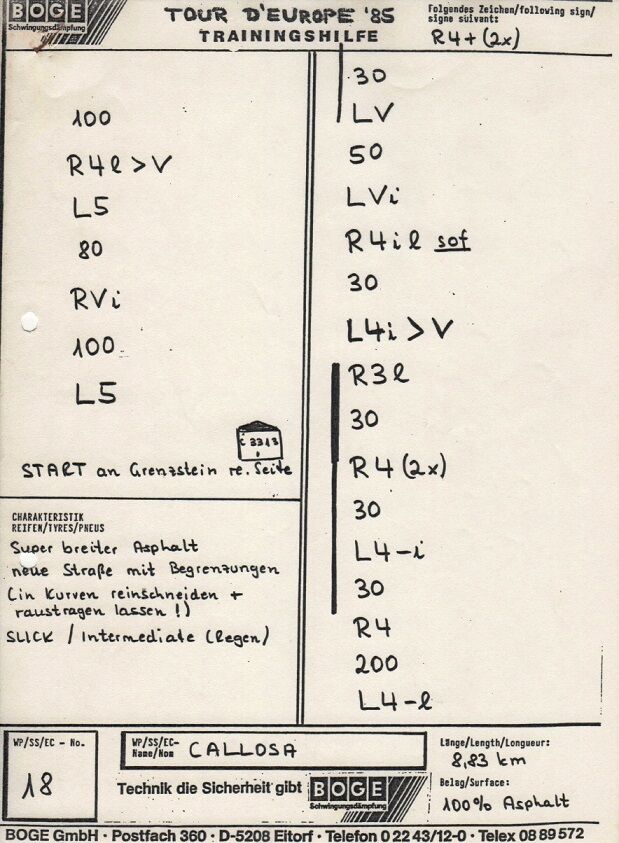 BOGE
Schwingungsdämpfung
TOUR D'EUROPE '85
TRAININGSHILFE
Folgendes Zeichen/following sign/
signe suivant:
R4+(2x)
100
R4l>V
L5
80
RVi
100
L5
C 3313
START an Grenzstein re. Seite
CHARAKTERISTIK
REIFEN/TYRES/PNEUS
Super breiter Asphalt
neue Straße mit Begrenzungen
(in Kurven reinschneiden +
raustragen lassen!)
SLICK / Intermediate (Regen)
30
LV
50
LVi
R4il sof
30
L4i>V
R3l
30
R4(2x)
30
L4-i
30
R4
200
L4-l
WP/SS/EC - No.
18
WP/SS/EC-
Name/Nom
CALLOSA
Technik die Sicherheit gibt
BOGE
Schwingungsdämpfung
Länge/Length/Longueur:
8,83 km
Belag/Surface:
100% Asphalt
BOGE GmbH · Postfach 360 · D-5208 Eitorf · Telefon 0 22 43/12-0 · Telex 08 89 572